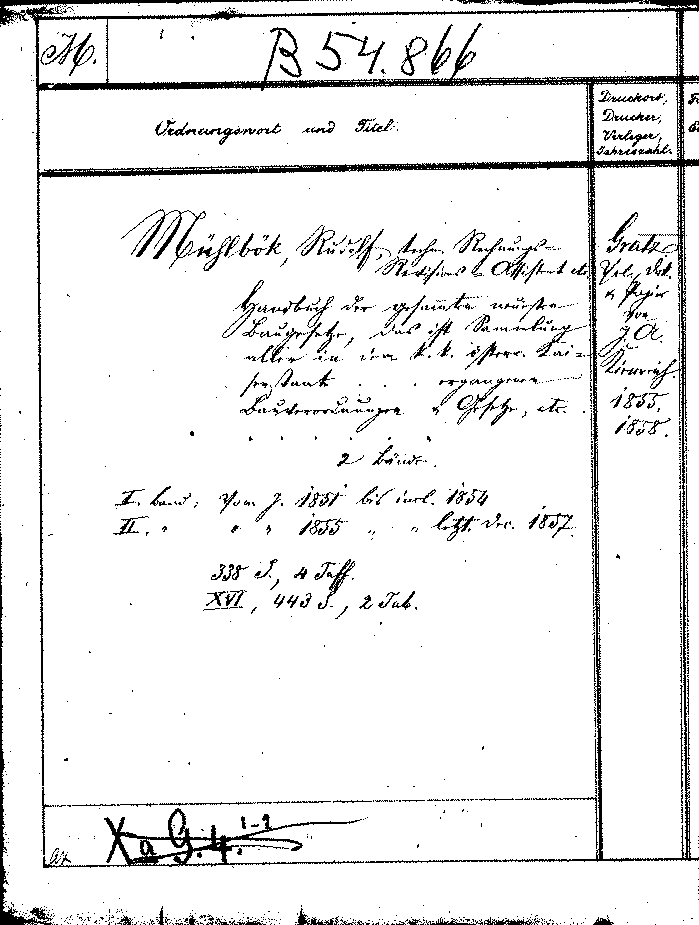 M.
B 54.866
Ordnungswort und Titel.
Druckort,
Drucker,
Verleger,
Jahreszahl.
Mühlbök, Rudolf, techn. Rechnungs-
Revisions-Assistent etc.
Handbuch der gesammten neuesten
Baugesetze, das ist Sammlung
aller in dem k. k. österr. Kai-
serstaate . . . ergangenen
Bauverordnungen u Gesetze, etc.
2 Bände.
I. Band: Vom J. 1851 bis incl. 1854
II. " " " 1855 " " letzt. Dec. 1857.
338 S., 4 Taff.
XVI, 443 S., 2 Tab.
Gratz
Vel., Dr.
u Papier
von
J. A.
Kienreich.
1855.
1858.
Xa G. 4. 1-2